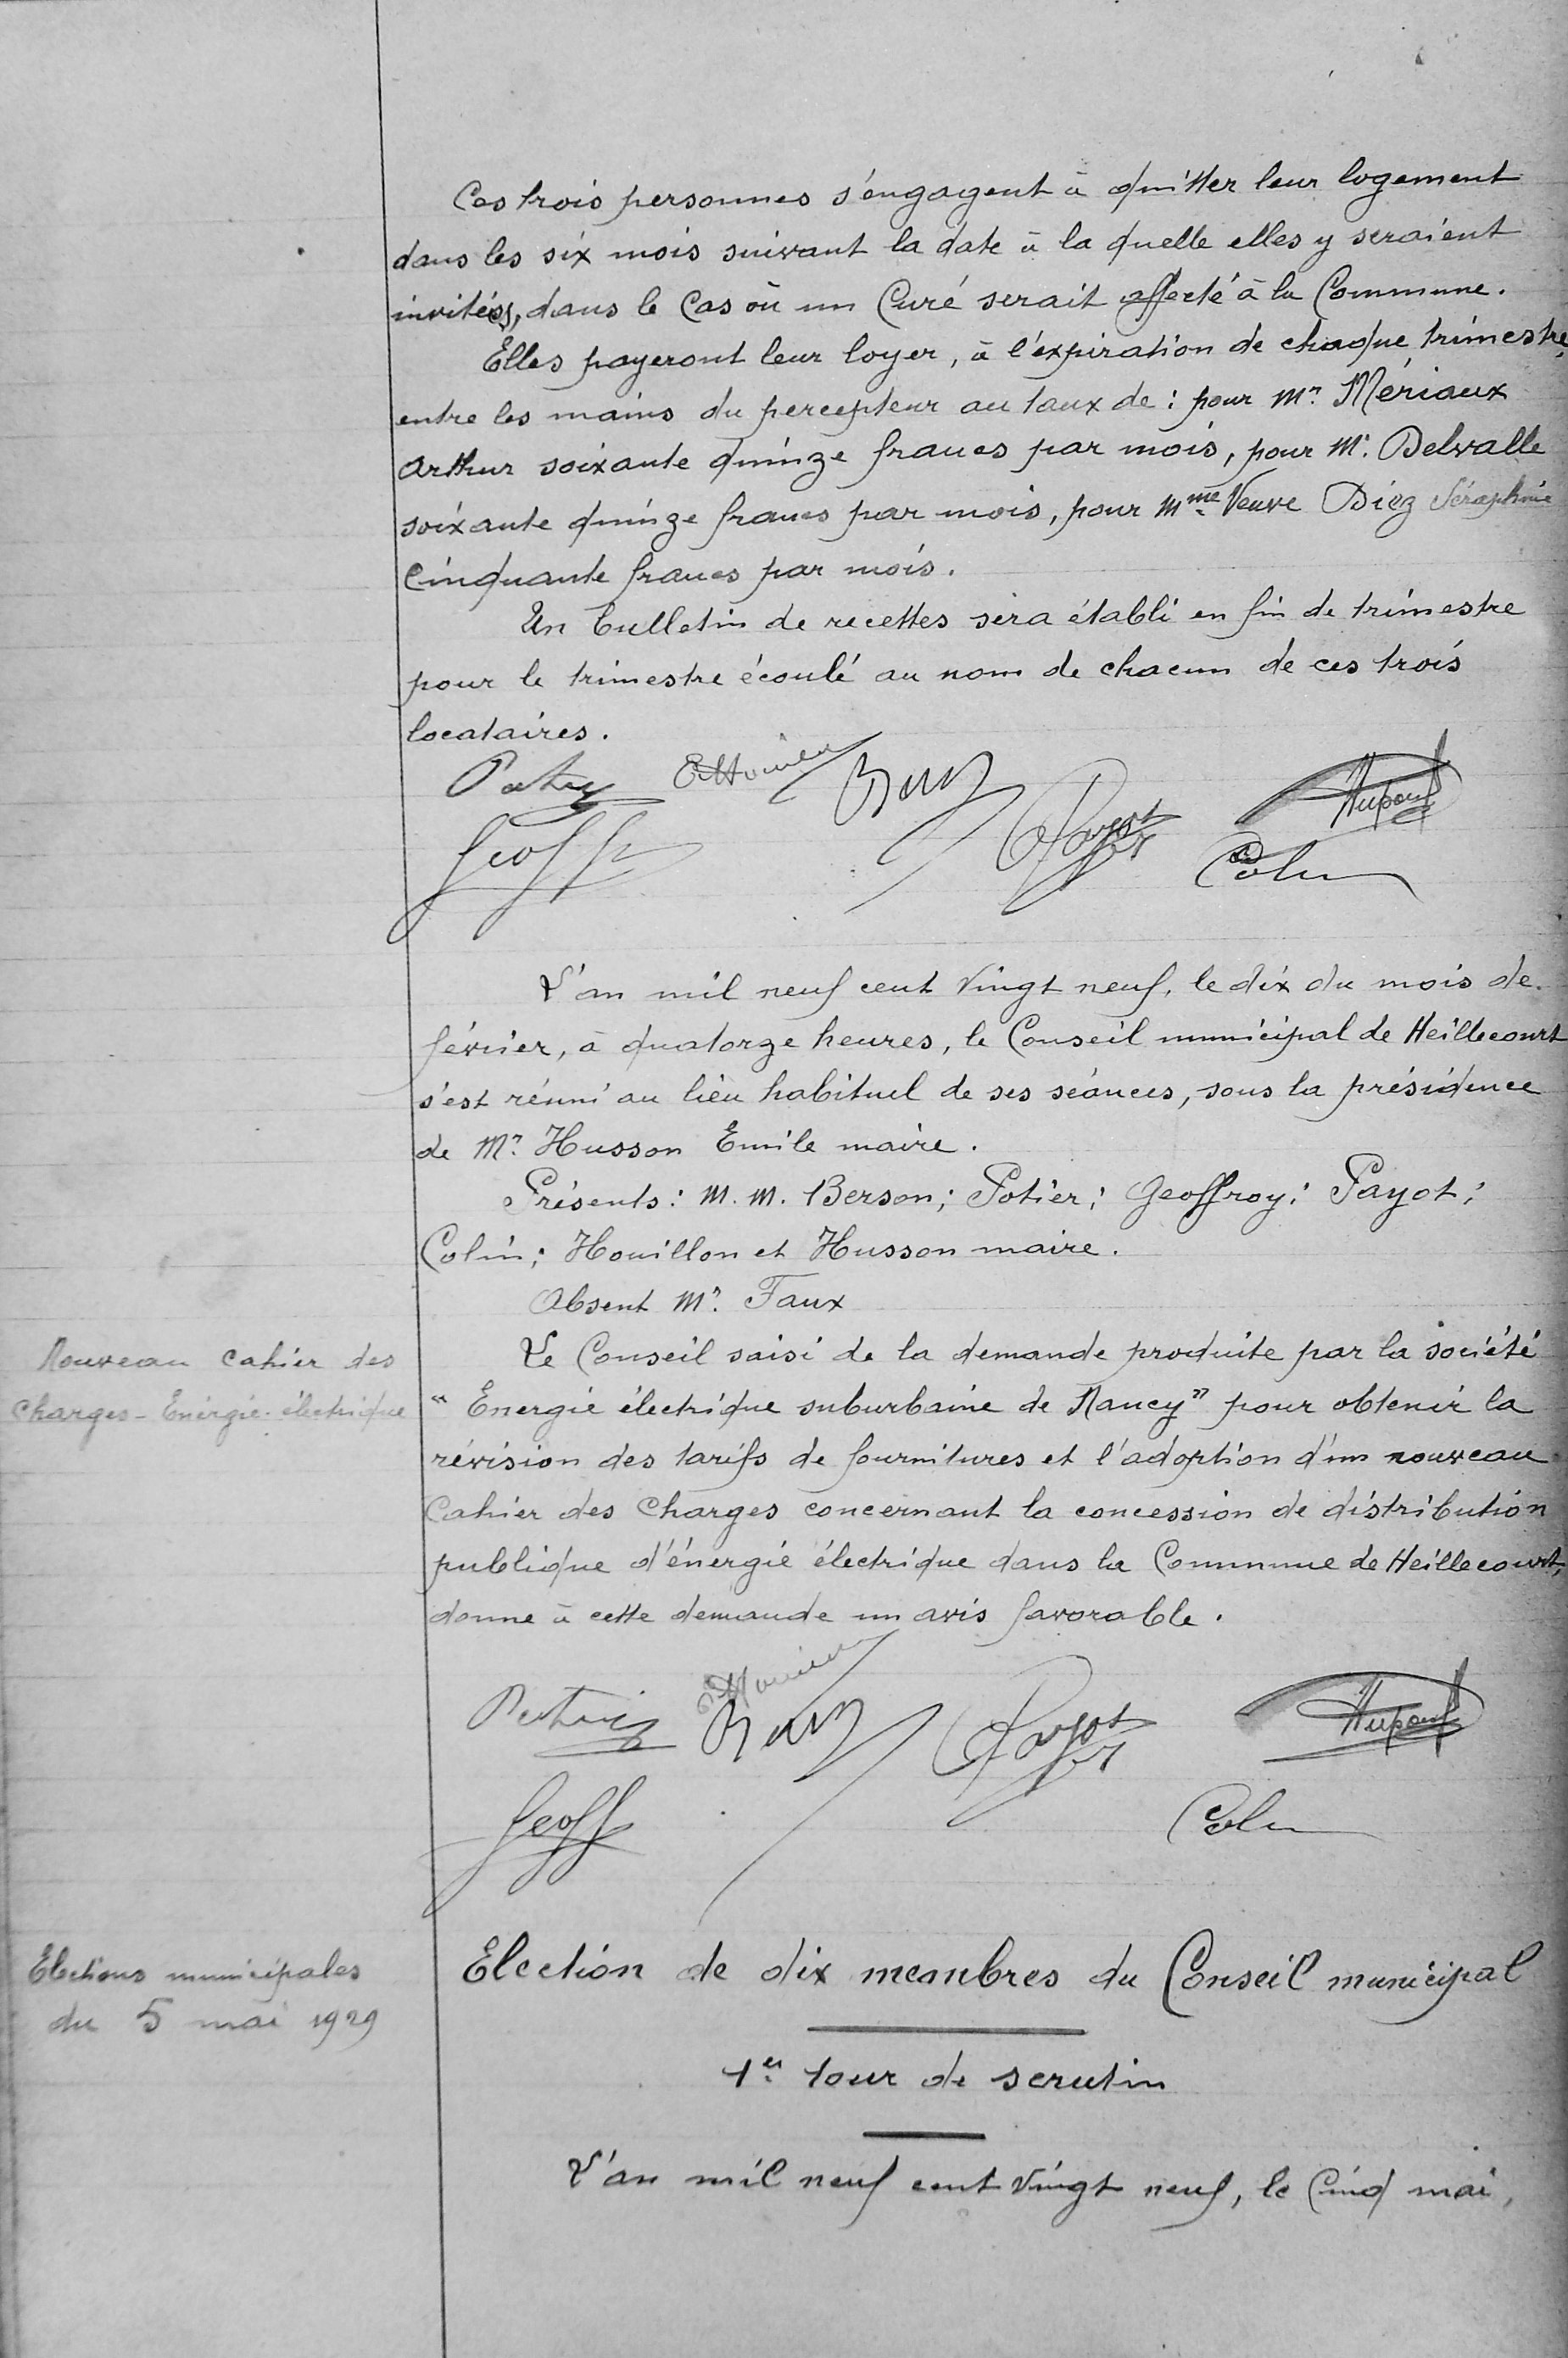 Ces trois personnes s'engagent à quitter leur logement
dans les six mois suivant la date à la quelle elles y seraient
invitées, dans le cas où un Curé serait affecté à la Commune.
Elles payeront leur loyer, à l'expiration de chaque trimestre,
entre les mains du percepteur au taux de : pour Mr. Mériaux
Arthur soixante quinze francs par mois, pour Mr. Delvalle
soixante quinze francs par mois, pour Mme Veuve Diez Séraphine
Cinquante francs par mois.
Un bulletin de recettes sera établi en fin de trimestre
pour le trimestre écoulé au nom de chacun de ces trois
locataires.
Payot
Geoff
Colin
L'an mil neuf cent vingt neuf, le dix du mois de
février, à quatorze heures, le Conseil municipal de Heillecourt
s'est réuni au lieu habituel de ses séances, sous la présidence
de Mr. Husson Emile maire.
Présents : M.M. Berson; Potier; Geoffroy; Payot;
Colin; Houillon et Husson maire.
Absent Mr. Faux
Nouveau cahier des
charges - Energie électrique
Le Conseil saisi de la demande produite par la société
"Energie électrique suburbaine de Nancy" pour obtenir la
révision des tarifs de fournitures et l'adoption d'un nouveau
Cahier des Charges concernant la concession de distribution
publique d'énergie électrique dans la Commune de Heillecourt,
donne à cette demande un avis favorable.
Payot
Geoff
Colin
Elections municipales
du 5 mai 1929
Election de dix membres du Conseil municipal
1er tour de scrutin
L'an mil neuf cent vingt neuf, le Cinq mai,